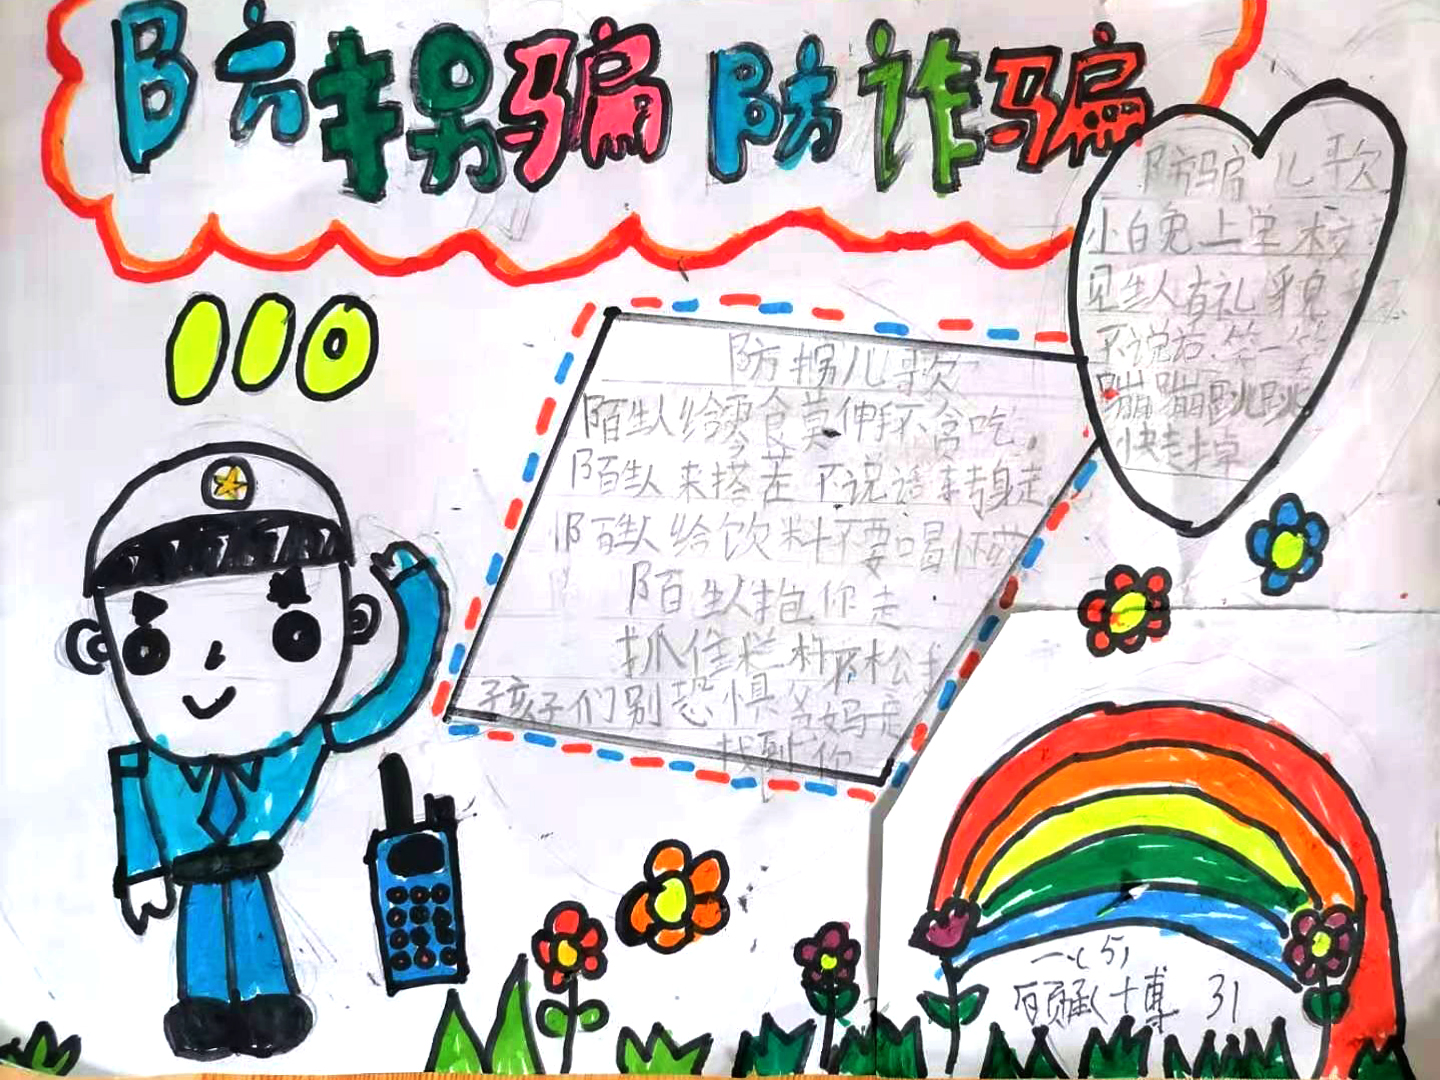 防拐骗 防诈骗
110
防骗儿歌
小白兔上学校
见生人有礼貌
不说话笑一笑
蹦蹦跳跳
快走掉
防拐儿歌
陌生人给零食莫伸手不贪吃，
陌生人来搭茬不说话转身走
陌生人给饮料不要喝
陌生人抱你走
抓住栏杆不松手
孩子们别恐惧爸妈定
找到你
一(5)
博 31